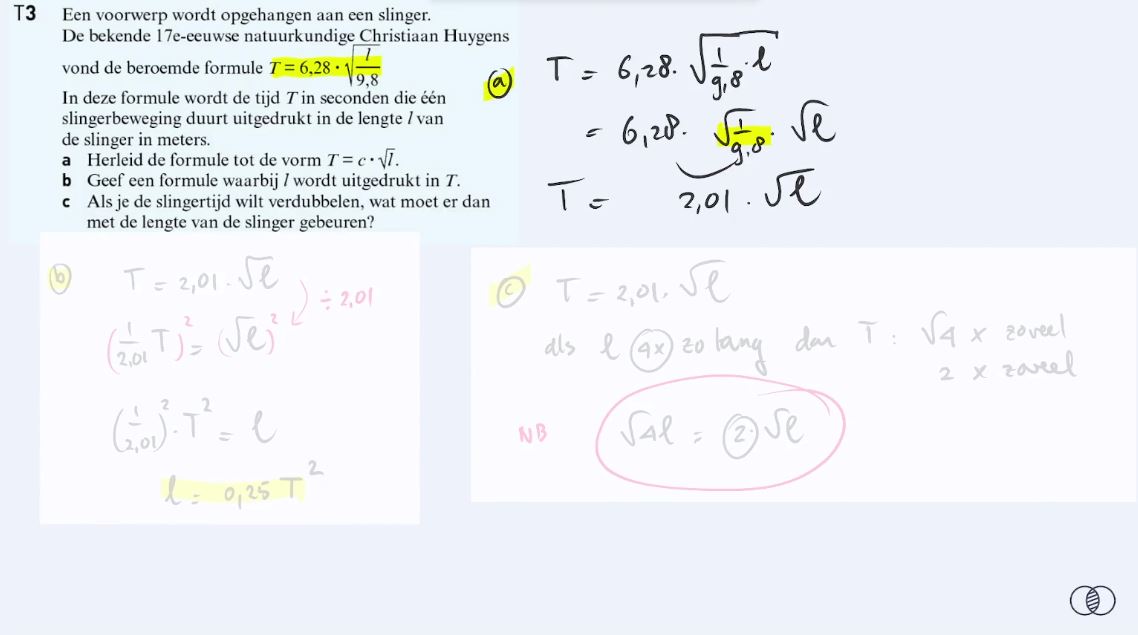 T3 Een voorwerp wordt opgehangen aan een slinger.
De bekende 17e-eeuwse natuurkundige Christiaan Huygens
vond de beroemde formule T = 6,28 · √(l/9,8)
In deze formule wordt de tijd T in seconden die één
slingerbeweging duurt uitgedrukt in de lengte l van
de slinger in meters.
a Herleid de formule tot de vorm T = c · √l.
b Geef een formule waarbij l wordt uitgedrukt in T.
c Als je de slingertijd wilt verdubbelen, wat moet er dan
met de lengte van de slinger gebeuren?
a T = 6,28 · √(1/9,8 · l)
= 6,28 · √(1/9,8) · √l
T = 2,01 · √l
b T = 2,01 · √l
÷ 2,01
(1/2,01 T)² = (√l)²
(1/2,01)² · T² = l
l = 0,25 T²
c T = 2,01 · √l
als l 4x zo lang dan T : √4 x zoveel
2 x zoveel
NB √4l = 2 · √l